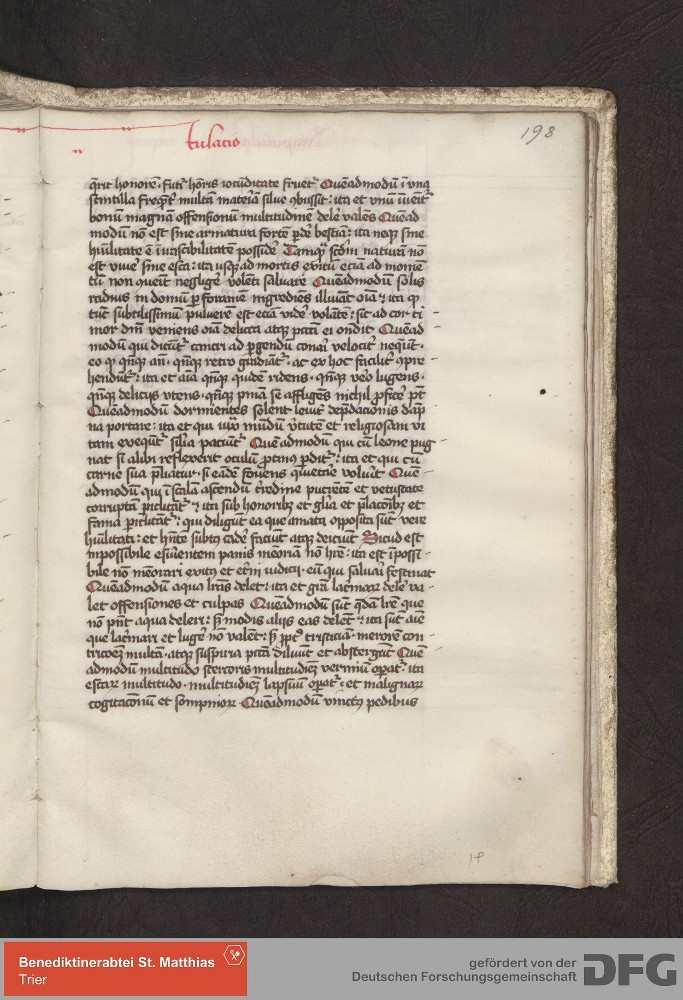 tulacio
198
q̄rit honorē · futͥ hōris iocūditate fruet᷑ Quēadmodū ī vna
scintilla freqn̄t᷑ multā materiā silue ꝯbussit : ita et vnū īuēit᷑
bonū magnā offensionū multitudinē delē valēs Quēad
modū nō est sine armatura fortē ꝑdē bestiā : ita neqꝫ sine
hūilitate ē īirascibilitatē possidē Tamqͣ scd̄m naturā nō
est viuē sine esca : ita usqꝫ ad mortis exitū eciā ad momē
tū non queūt negligē volēti saluare Quēadmodū solis
radius in domū ꝑ foramē ingrediēs illuīat oīa ⁊ ita ꝙ
tūc subtilissimū puluerē est eciā vidē volātē : sic ad cor ti
mor dn̄i veniens oīa delicta atqꝫ pctā ei ondit Quēad
modū qui dicūt᷑ cancri ad ꝑgendū conāī velocit᷑ neqūt ·
eo ꝙ qn̄qꝫ an̄ · qn̄qꝫ retro gradiāt᷑ · ac ex hoc facilit᷑ ꝯpre
hendūt᷑ : ita et aīa qn̄qꝫ quidē ridens · qn̄qꝫ vēo lugens ·
qn̄qꝫ delicijs vtens · qn̄qꝫ pn̄iā se affligēs nichil ꝓficē pt̄
Quēadmodū dormientēs solent leuit᷑ depdacionis dāp
na portare : ita et qui iuxͣ mūdū v̄tutē et religiosam vi
tam exequt᷑ silia paciūt᷑ Quē admodū qui cū leone pug
nat si alibi reflexerit oculū ꝓtinꝰ ꝑdit᷑ : ita et qui cū
carne sua p̄liatur · si eādē fouens quietuē volūt᷑ Quē
admodū qui ī scala ascendūt᷑ putrefctē et vetustate
corruptā ꝑiclitāt᷑ ⁊ ita sub honoribꝫ et glīa et p̄lacōibꝫ et
fama ꝑiclitāt᷑ : qui diligūt ea que amata opposita sūt vere
hūilitati : et hn̄tē subtꝰ cadē faciūt atqꝫ deiciūt Sicud est
impossibile esuientem panis mēoriā nō hr̄e : ita est ip̄ossi
bile nō mēorari exitꝰ et et̄ni iudicij · eū qui saluāi festinat
Quēadmodū aqua lr̄as delet : ita et gͣa lac̄maꝝ delē va
let offensiones et culpas Quēadmodū sūt qͣdā lr̄e que
nō pn̄t aqua deleri : sꝫ modis alijs eas delēt ⁊ ita sūt aīe
que lac̄mari et lugē nō valēt : sꝫ ꝓptꝰ tristiciā · merorē con
tricōeꝫ multā · atqꝫ suspiria pctā diluūt et abstergūt Quē
admodū multitudo stercoris multitudīeꝫ vermiū oꝑat᷑ · ita
escaꝝ multitudo · multitudīeꝫ lapsuū oꝑat᷑ · et malignaꝝ
cogitacōnū et sompnioꝝ Quēadmodū vinctꝰ pedibus
Benediktinerabtei St. Matthias
Trier
gefördert von der
Deutschen Forschungsgemeinschaft
DFG